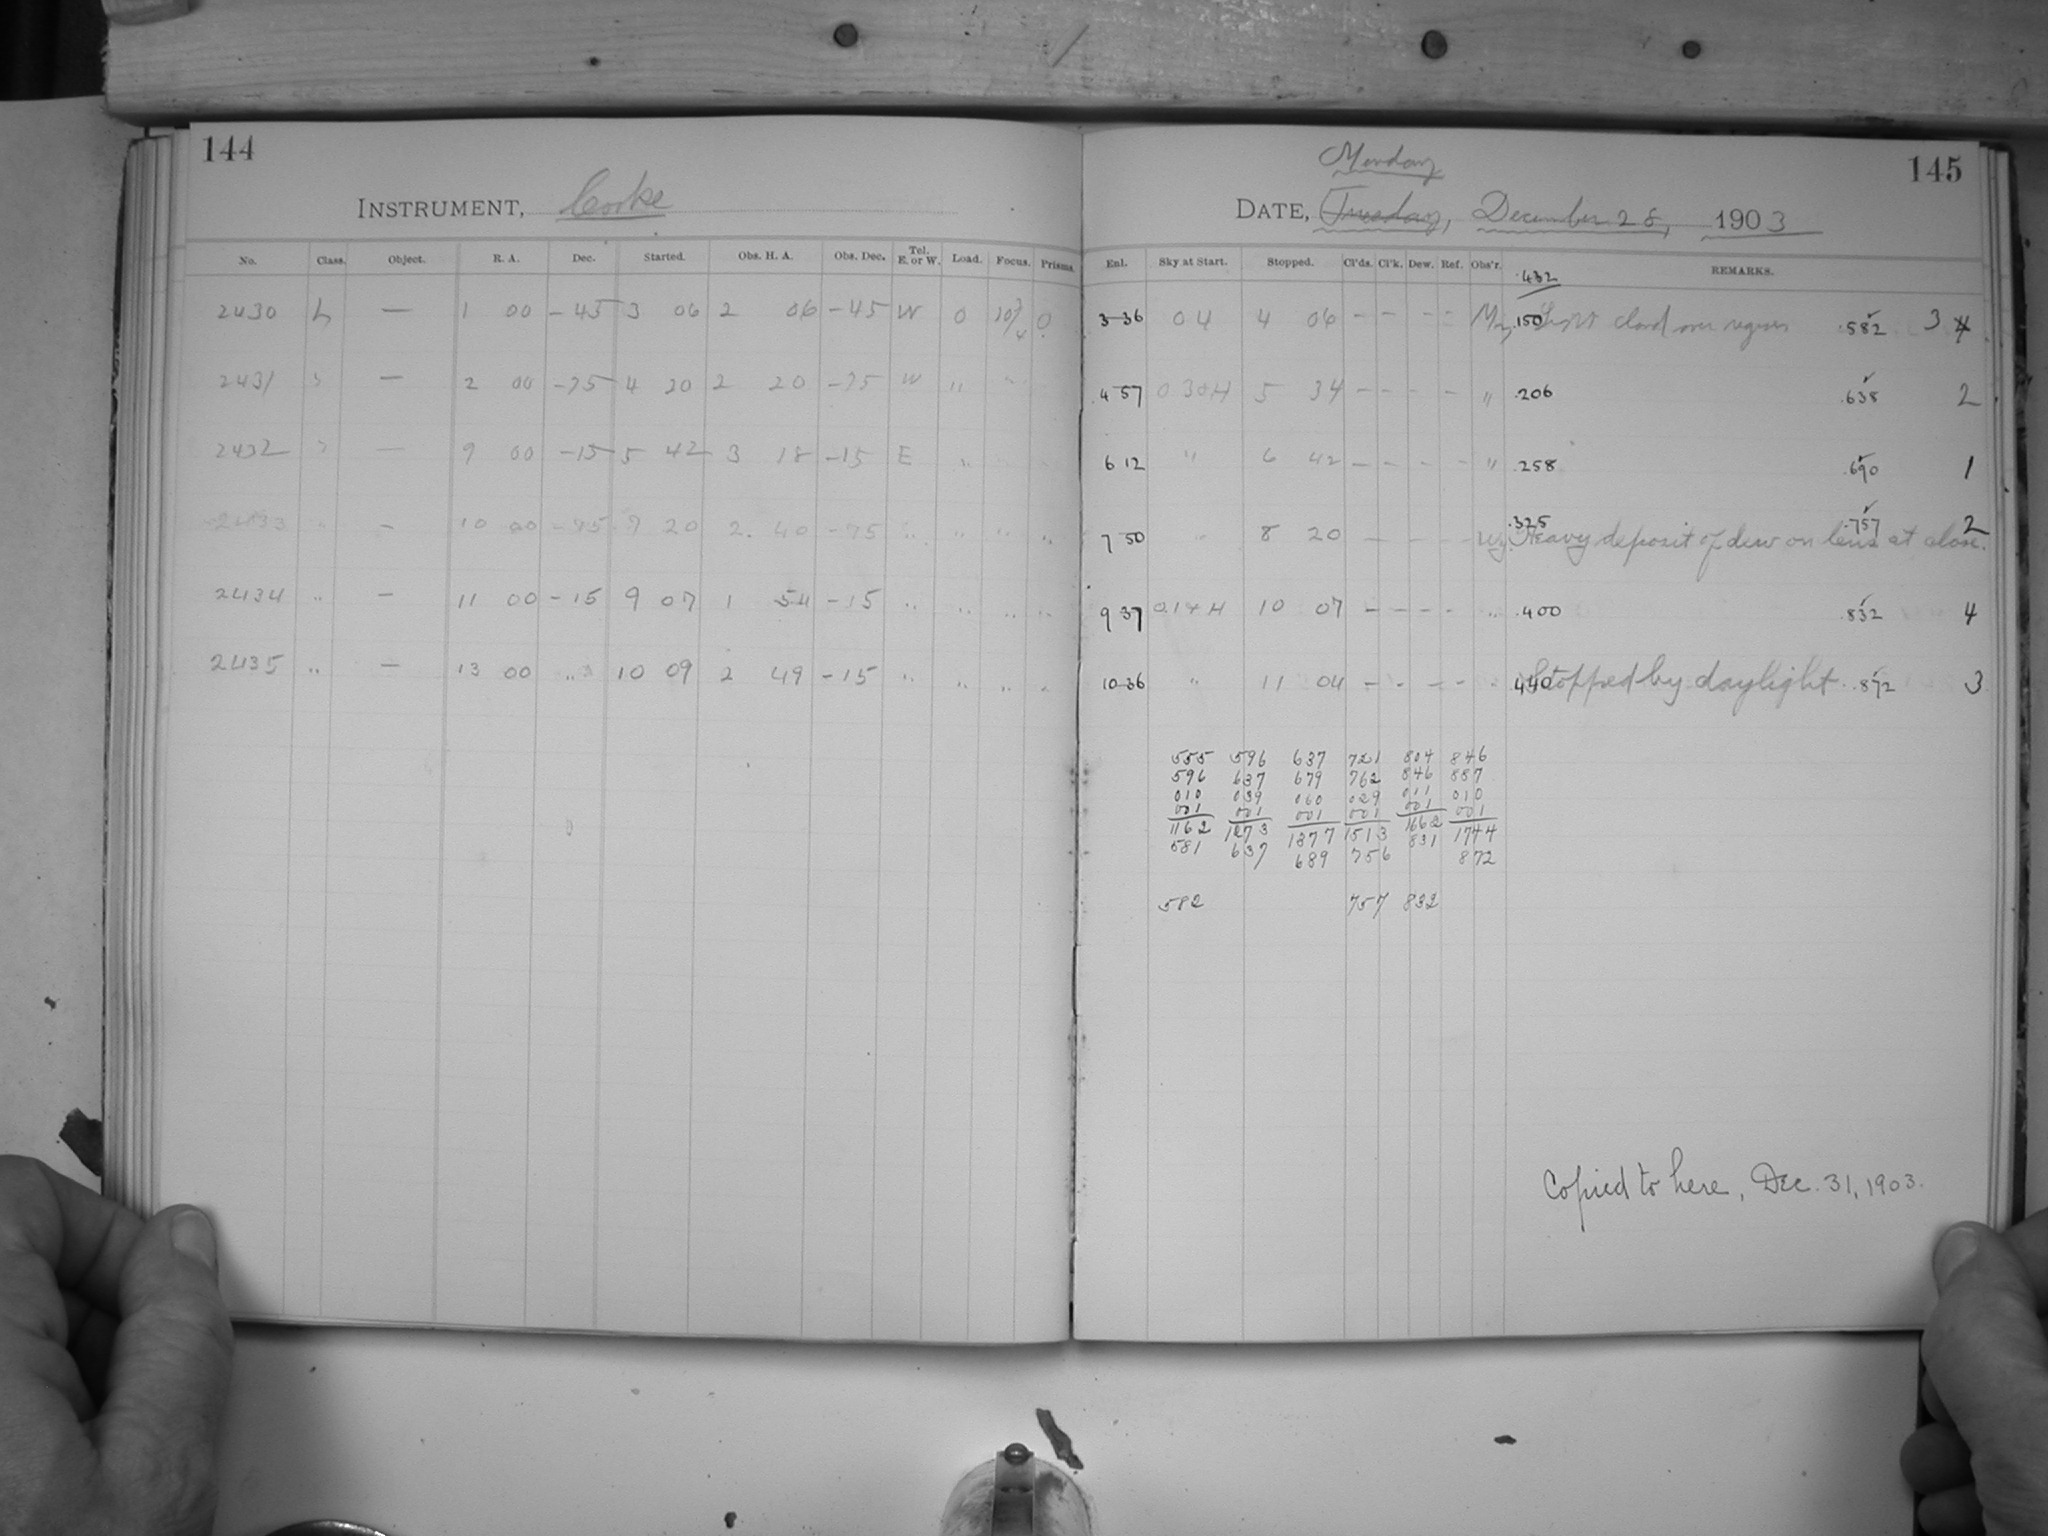 144
INSTRUMENT, Cooke
No. Class. Object. R. A. Dec. Started. Obs. H. A. Obs. Dec. Tel. E. or W. Load. Focus. Prisms.
2430 L — 1 00 -45 3 06 2 06 -45 W 0 10 3/4 0
2431 " — 2 00 -75 4 20 2 20 -75 W " "
2432 " — 9 00 -15 5 42 3 18 -15 E "
2433 " — 10 00 -75 7 20 2. 40 -75 " " " "
2434 " — 11 00 -15 9 07 1 54 -15 " " " "
2435 " — 13 00 " 10 09 2 49 -15 " " " "
145
Monday
DATE, Tuesday, December 28, 1903
Enl. Sky at Start. Stopped. Cl'ds. Cl'k. Dew. Ref. Obs'r. REMARKS.
.432
3 36 04 4 06 - - - - .150 Light cloud over region .582 3 4
4 57 0.30H 5 34 - - - - " .206 .638 2
6 12 " 6 42 - - - - " .258 .690 1
7 50 " 8 20 - - - - .325 Heavy deposit of dew on lens at close. .757 2
9 37 0.1+H 10 07 - - - - " .400 .832 4
10 36 " 11 04 - - - - " .440 Stopped by daylight .872 3
555 596 637 721 804 846
596 637 679 762 846 887
010 039 060 029 011 010
001 001 001 001 001 001
1162 1273 1377 1513 1662 1744
581 637 689 756 831 872
582 757 832
Copied to here, Dec. 31, 1903.